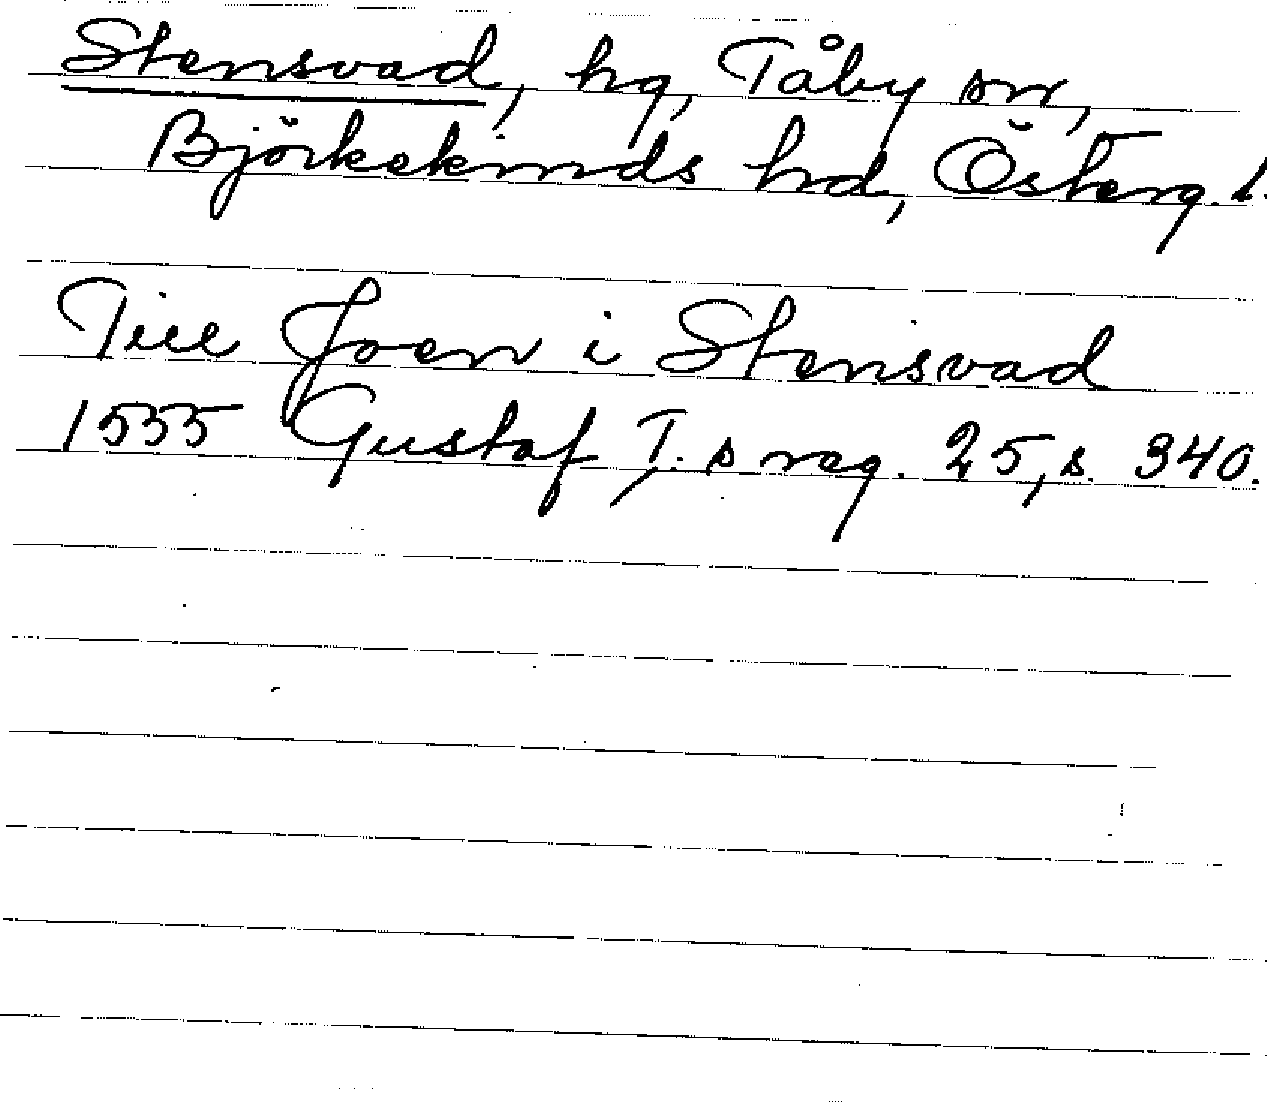 Stensvad, hg, Tåby sn,
Björkekinds hd, Österg. l.
Till Joen i Stensvad
1555 Gustaf I.s reg. 25, s. 340.